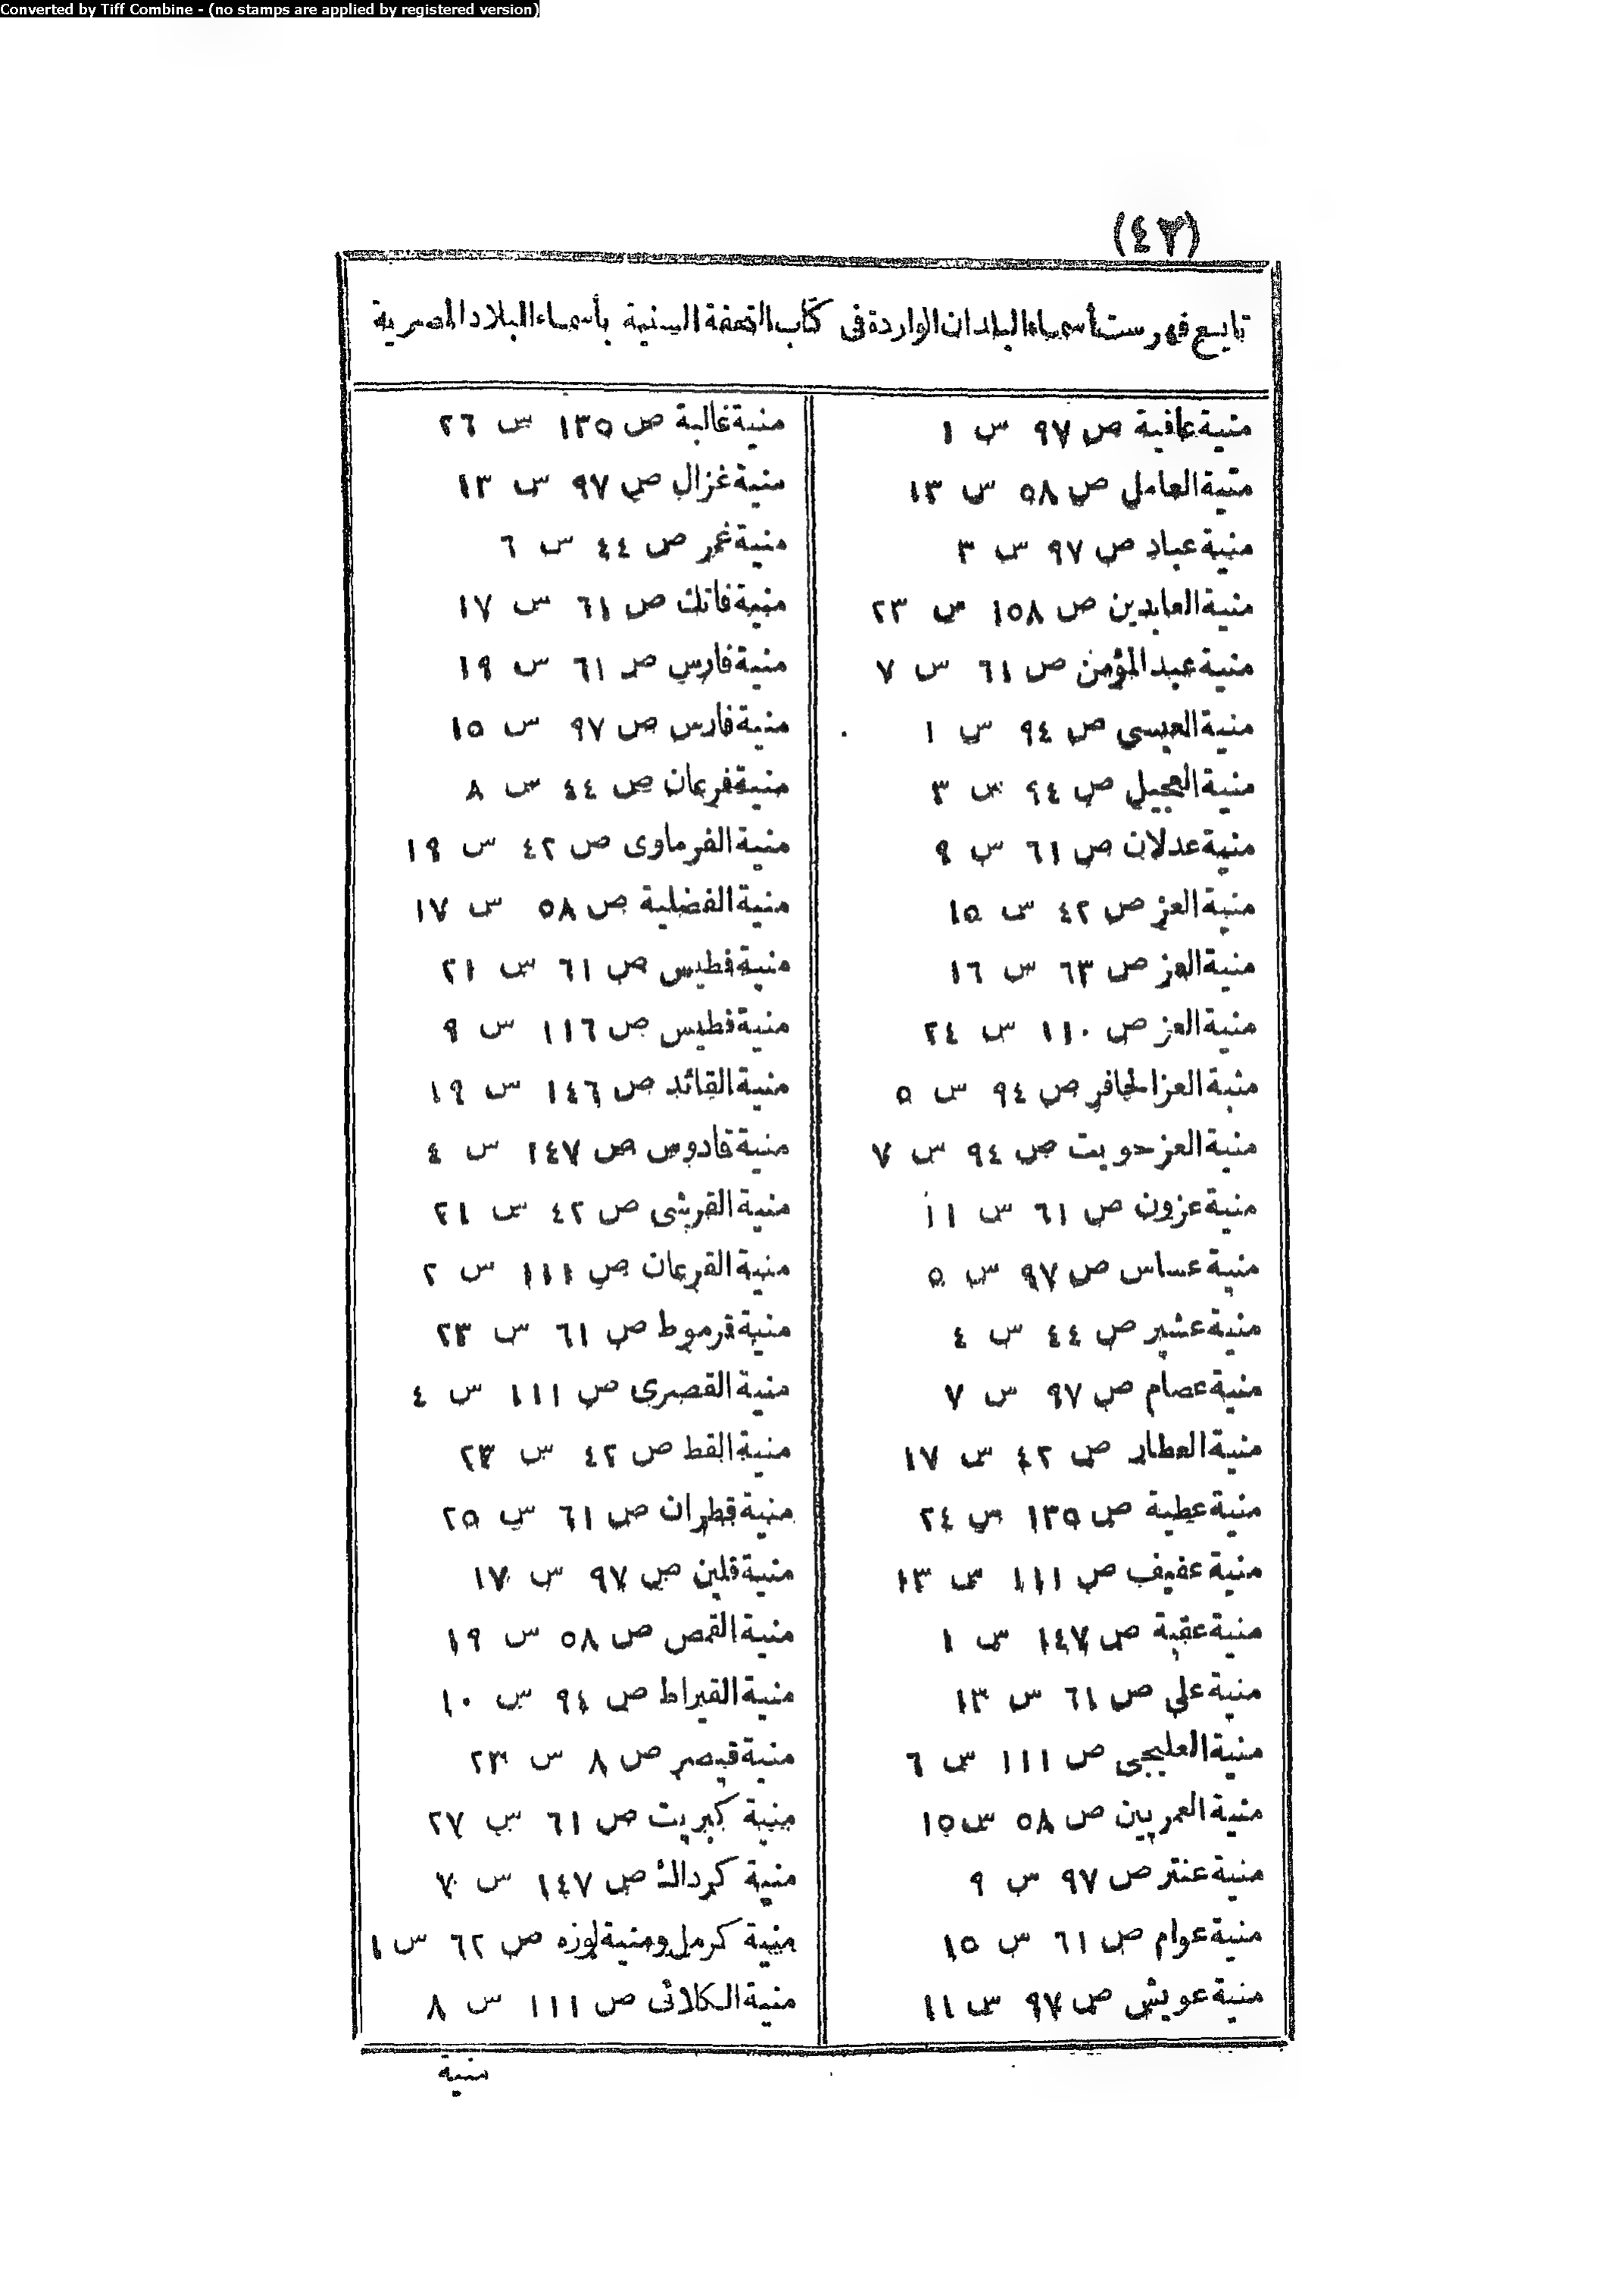 Converted by Tiff Combine - (no stamps are applied by registered version)
(٤٢)
تابع فهرست أسماء البلدان الواردة فى كتاب التحفة السنية بأسماء البلاد المصرية
منية عافية ص ٩٧ س ١
منية العامل ص ٥٨ س ١٣
منية عباد ص ٩٧ س ٣
منية العابدين ص ١٥٨ س ٢٣
منية عبد المؤمن ص ٦١ س ٧
منية العبسى ص ٩٤ س ١
منية العجيل ص ٩٤ س ٣
منية عدلان ص ٦١ س ٩
منية العز ص ٤٢ س ١٥
منية العز ص ٦٣ س ١٦
منية العز ص ١١٠ س ٢٤
منية العز الحافر ص ٩٤ س ٥
منية العز حويت ص ٩٤ س ٧
منية عزون ص ٦١ س ١١
منية عساس ص ٩٧ س ٥
منية عشير ص ٤٤ س ٤
منية عصام ص ٩٧ س ٧
منية العطار ص ٤٢ س ١٧
منية عطية ص ١٣٥ س ٢٤
منية عفيف ص ١١١ س ١٣
منية عقبة ص ١٤٧ س ١
منية على ص ٦١ س ١٣
منية العليجى ص ١١١ س ٦
منية العمريين ص ٥٨ س ١٥
منية عنتر ص ٩٧ س ٩
منية عوام ص ٦١ س ١٥
منية عويش ص ٩٧ س ١١
منية غالبة ص ١٣٥ س ٢٦
منية غزال ص ٩٧ س ١٣
منية غمر ص ٤٤ س ٦
منية فاتك ص ٦١ س ١٧
منية فارس ص ٦١ س ١٩
منية فارس ص ٩٧ س ١٥
منية فرعان ص ٤٤ س ٨
منية الفرماوى ص ٤٢ س ١٩
منية الفضلية ص ٥٨ س ١٧
منية فطيس ص ٦١ س ٢١
منية فطيس ص ١١٦ س ٩
منية القائد ص ١٤٦ س ١٩
منية قادوس ص ١٤٧ س ٤
منية القرشى ص ٤٢ س ٢١
منية القرعان ص ١١١ س ٢
منية قرموط ص ٦١ س ٢٣
منية القصرى ص ١١١ س ٤
منية القط ص ٤٢ س ٢٣
منية قطران ص ٦١ س ٢٥
منية قلين ص ٩٧ س ١٧
منية القمص ص ٥٨ س ١٩
منية القيراط ص ٩٤ س ١٠
منية قيصر ص ٨ س ٢٣
منية كبريت ص ٦١ س ٢٧
منية كرداك ص ١٤٧ س ٧
منية كرمل ومنية لوزه ص ٦٢ س ١
منية الكلائى ص ١١١ س ٨
منية